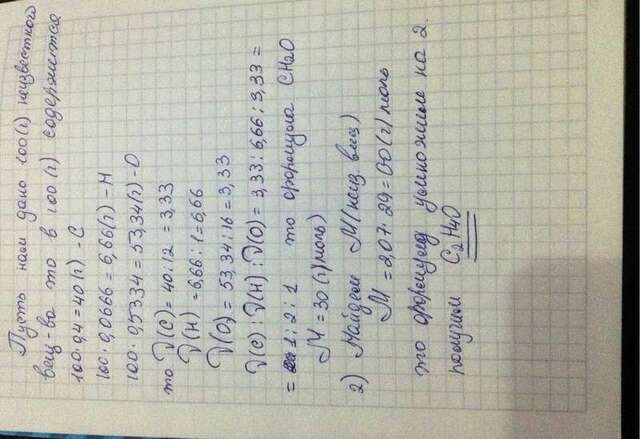 Пусть нам дано 100(г) неизвестного
вещ-ва то в 100(г) содержится
100·0,4=40(г) - C
100·0,0666=6,66(г) - H
100·0,5334=53,34(г) - O
то ν(C)=40:12=3,33
ν(H)=6,66:1=6,66
ν(O)=53,34:16=3,33
ν(C):ν(H):ν(O)=3,33:6,66:3,33=
=1:2:1 то формула CH2O
M=30(г)моль)
2) Найдем M(неиз вещ)
M=2,07·29=60(г)моль
то формулу умножим на 2.
получим C2H4O